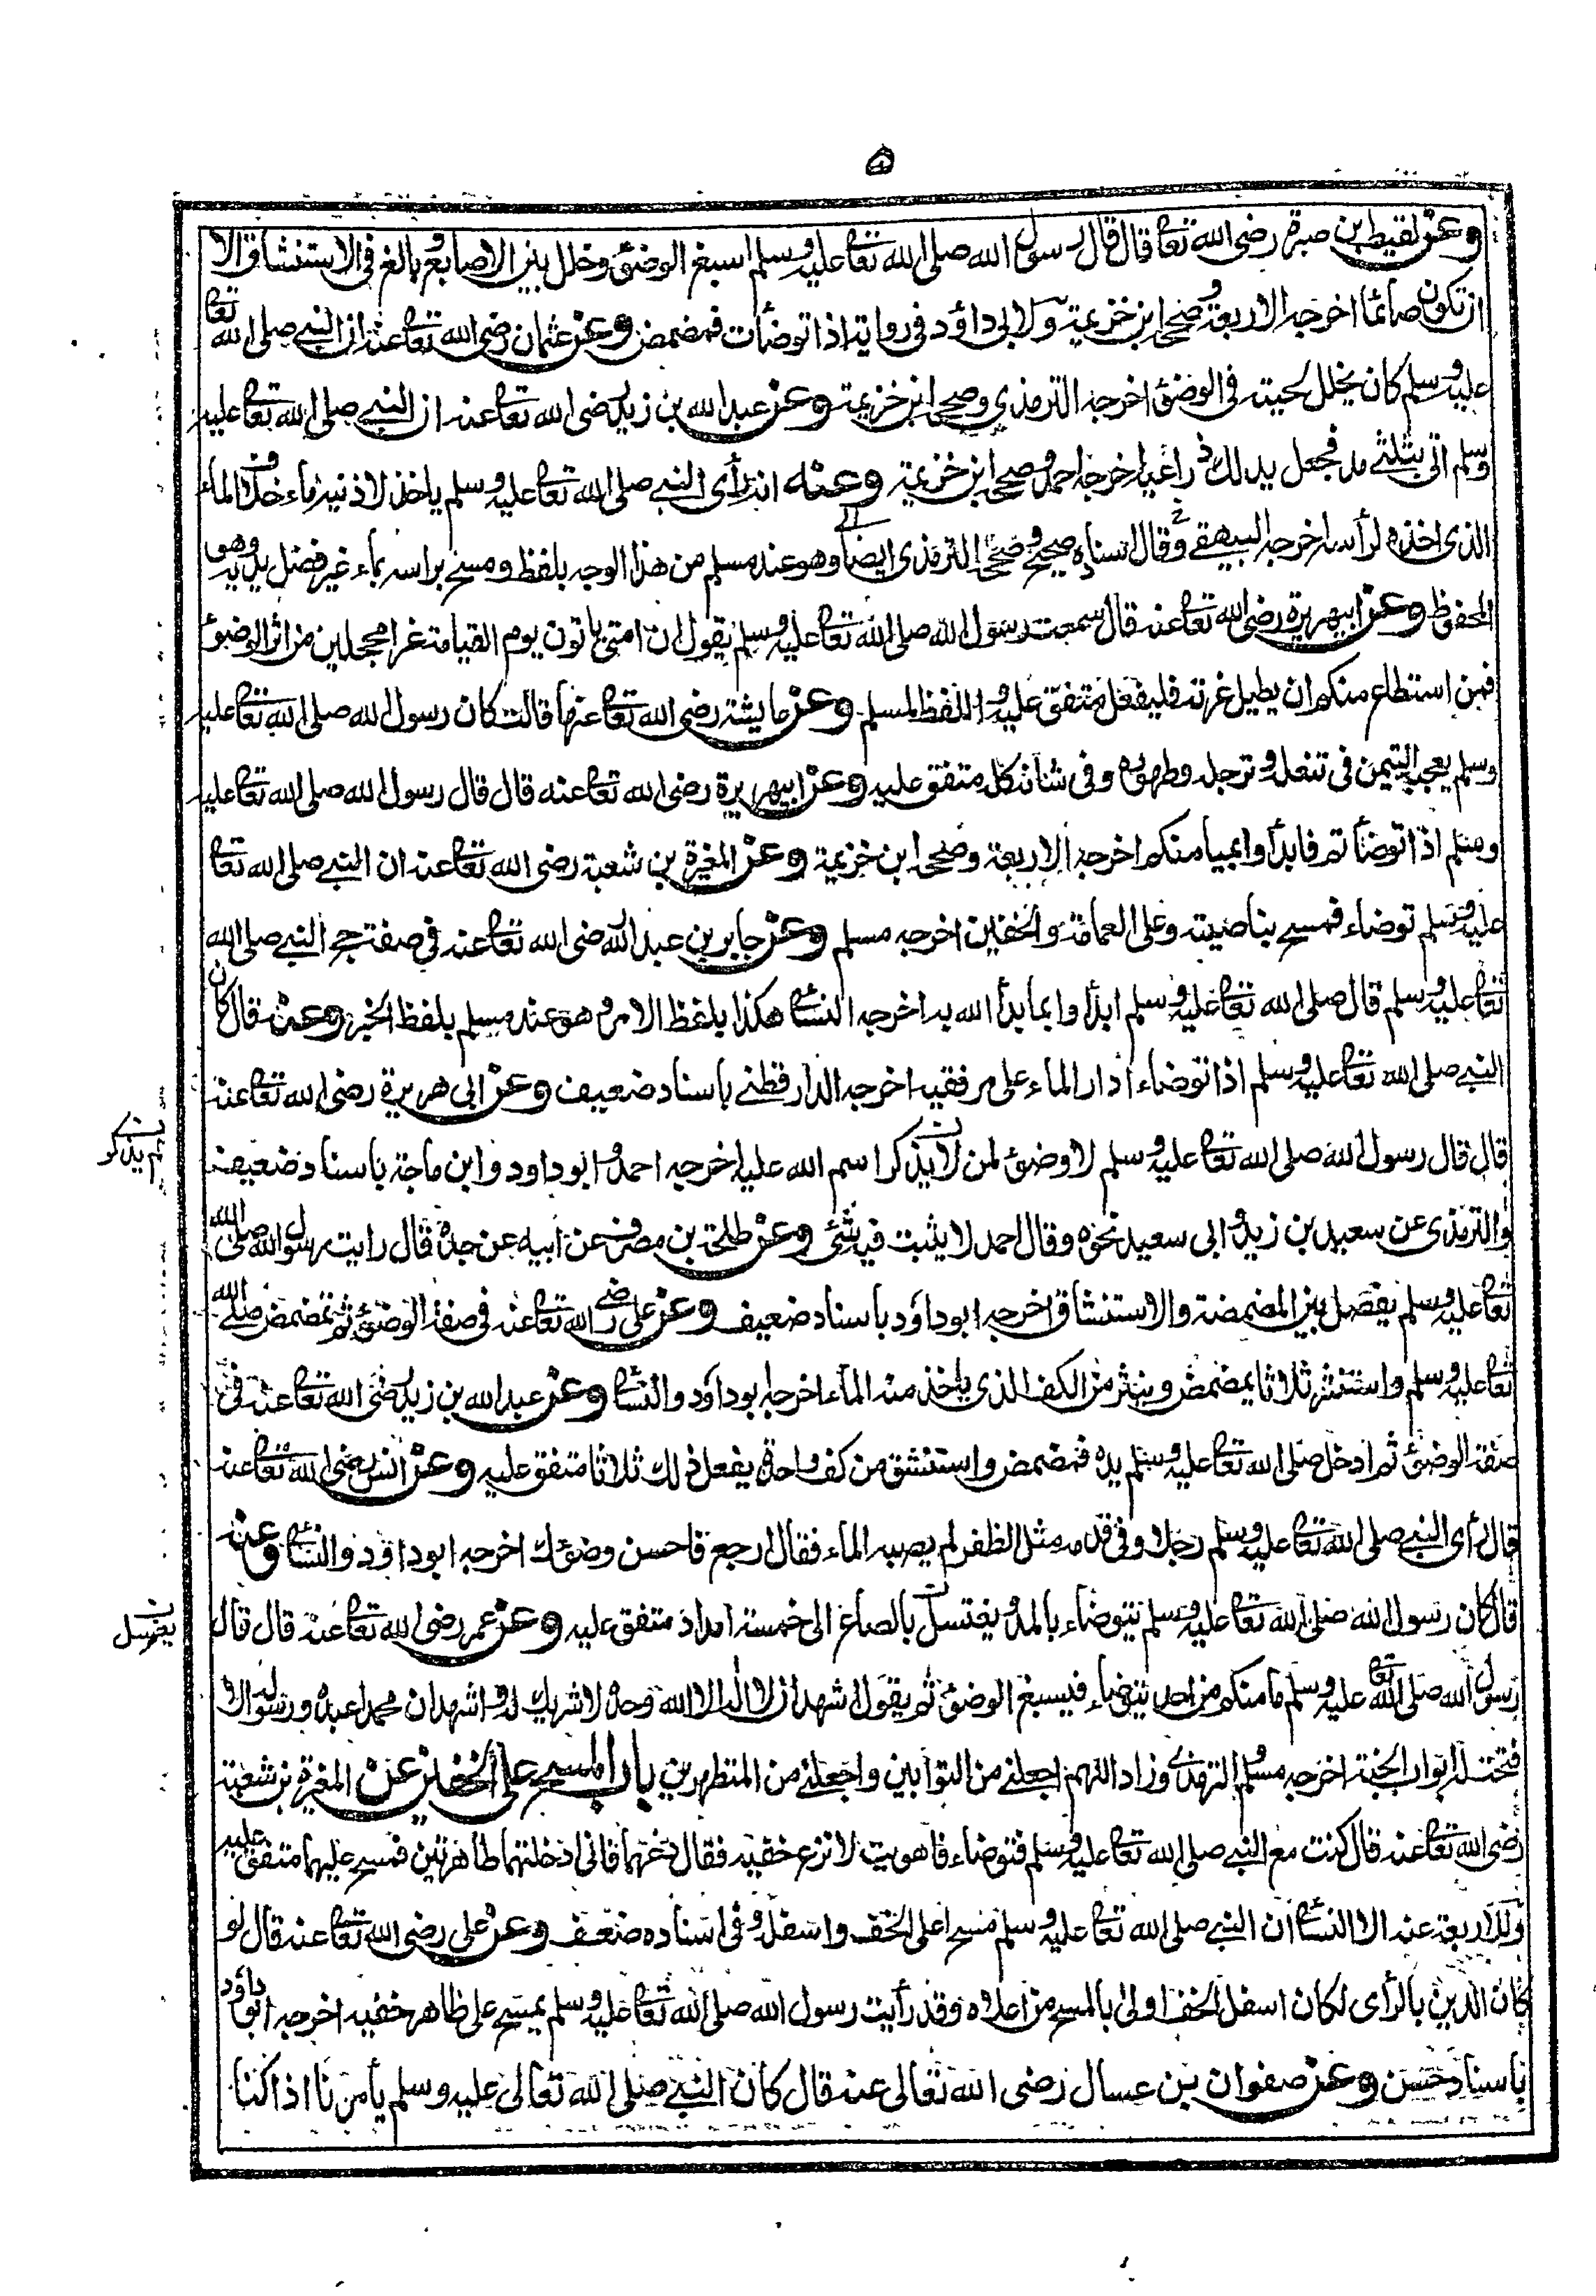 ۵
وعن لقيط بن صبرة رضى الله تعا قال قال رسول الله صلى الله تعا عليه وسلم اسبغ الوضوئ وخلل بين الاصابع وبالغ فى الاستنشاق الا
ان تكون صائما اخرجه الاربعة وصححه ابن خزيمة ولابى داؤد فى رواية اذا توضأت فمضمض وعن عثمان رضى الله تعا عنه ان النبى صلى الله تعا
عليه وسلم كان يخلل لحيته فى الوضوئ اخرجه الترمذى وصححه ابن خزيمة وعن عبد الله بن زيد رضى الله تعا عنه ان النبى صلى الله تعا عليه
وسلم اتى بثلثى مد فجعل يدلك ذراعيه اخرجه احمد وصححه ابن خزيمة وعنه انه رأى النبى صلى الله تعا عليه وسلم ياخذ لاذنيه ماء خلاف الماء
الذى اخذه لرأسه اخرجه البيهقى وقال اسناده صحيح وصححه الترمذى ايضا وهو عند مسلم من هذا الوجه بلفظ ومسح براسه بماء غير فضل يديه وهو
المحفوظ وعن ابيهريرة رضى الله تعا عنه قال سمعت رسول الله صلى الله تعا عليه وسلم يقول ان امتى ياتون يوم القيامة غرا محجلين من اثر الوضوئ
فمن استطاع منكم ان يطيل غرته فليفعل متفق عليه واللفظ لمسلم وعن عايشة رضى الله تعا عنها قالت كان رسول الله صلى الله تعا عليه
وسلم يعجبه التيمن فى تنعله وترجله وطهوره وفى شانه كله متفق عليه وعن ابيهريرة رضى الله تعا عنه قال قال رسول الله صلى الله تعا عليه
وسلم اذا توضأتم فابدأوا بميامنكم اخرجه الاربعة وصححه ابن خزيمة وعن المغيرة بن شعبة رضى الله تعا عنه ان النبى صلى الله تعا
عليه وسلم توضاء فمسح بناصيته وعلى العمامة والخفين اخرجه مسلم وعن جابر بن عبد الله رضى الله تعا عنه فى صفة حج النبى صلى الله
تعا عليه وسلم قال صلى الله تعا عليه وسلم ابدأوا بما بدأ الله به اخرجه النسائى هكذا بلفظ الامر وهو عند مسلم بلفظ الخبر وعنه قال كان
النبى صلى الله تعا عليه وسلم اذا توضاء ادار الماء على مرفقيه اخرجه الدارقطنى باسناد ضعيف وعن ابى هريرة رضى الله تعا عنه
قال قال رسول الله صلى الله تعا عليه وسلم لا وضوئ لمن لا يذكر اسم الله عليه اخرجه احمد وابو داود وابن ماجة باسناد ضعيف
لم يذكر
والترمذى عن سعيد بن زيد وابى سعيد نحوه وقال احمد لا يثبت فيه شئ وعن طلحة بن مصرف عن ابيه عن جده قال رايت رسول الله صلى الله
تعا عليه وسلم يفصل بين المضمضة والاستنشاق اخرجه ابو داؤد باسناد ضعيف وعن على رضى الله تعا عنه فى صفة الوضوئ ثم تمضمض صلى الله
تعا عليه وسلم واستنثر ثلاثا يمضمض وينثر من الكف الذى ياخذ منه الماء اخرجه ابو داؤد والنسائى وعن عبد الله بن زيد رضى الله تعا عنه فى
صفة الوضوئ ثم ادخل صلى الله تعا عليه وسلم يده فمضمض واستنشق من كف واحدة يفعل ذلك ثلاثا متفق عليه وعن انس رضى الله تعا عنه
قال رأى النبى صلى الله تعا عليه وسلم رجلا وفى قدمه مثل الظفر لم يصبه الماء فقال ارجع فاحسن وضوئك اخرجه ابو داؤد والنسائى وعنه
قال كان رسول الله صلى الله تعا عليه وسلم يتوضاء بالمد ويغتسل بالصاع الى خمسة امداد متفق عليه وعن عمر رضى الله تعا عنه قال قال
يغسل
رسول الله صلى الله تعا عليه وسلم ما منكم من احد يتوضاء فيسبغ الوضوئ ثم يقول اشهد ان لا اله الا الله وحده لا شريك له واشهد ان محمدا عبده ورسوله الا
فتحت له ابواب الجنة اخرجه مسلم والترمذى وزاد اللهم اجعلنى من التوابين واجعلنى من المتطهرين باب المسح على الخفين عن المغيرة بن شعبة
رضى الله تعا عنه قال كنت مع النبى صلى الله تعا عليه وسلم فتوضاء فاهويت لانزع خفيه فقال دعهما فانى ادخلتهما طاهرتين فمسح عليهما متفق عليه
وللاربعة عنه الا النسائى ان النبى صلى الله تعا عليه وسلم مسح اعلى الخف واسفله وفى اسناده ضعف وعن على رضى الله تعا عنه قال لو
كان الدين بالرأى لكان اسفل الخف اولى بالمسح من اعلاه وقد رأيت رسول الله صلى الله تعا عليه وسلم يمسح على ظاهر خفيه اخرجه ابو داؤد
باسناد حسن وعن صفوان بن عسال رضى الله تعالى عنه قال كان النبى صلى الله تعالى عليه وسلم يأمرنا اذا كنا